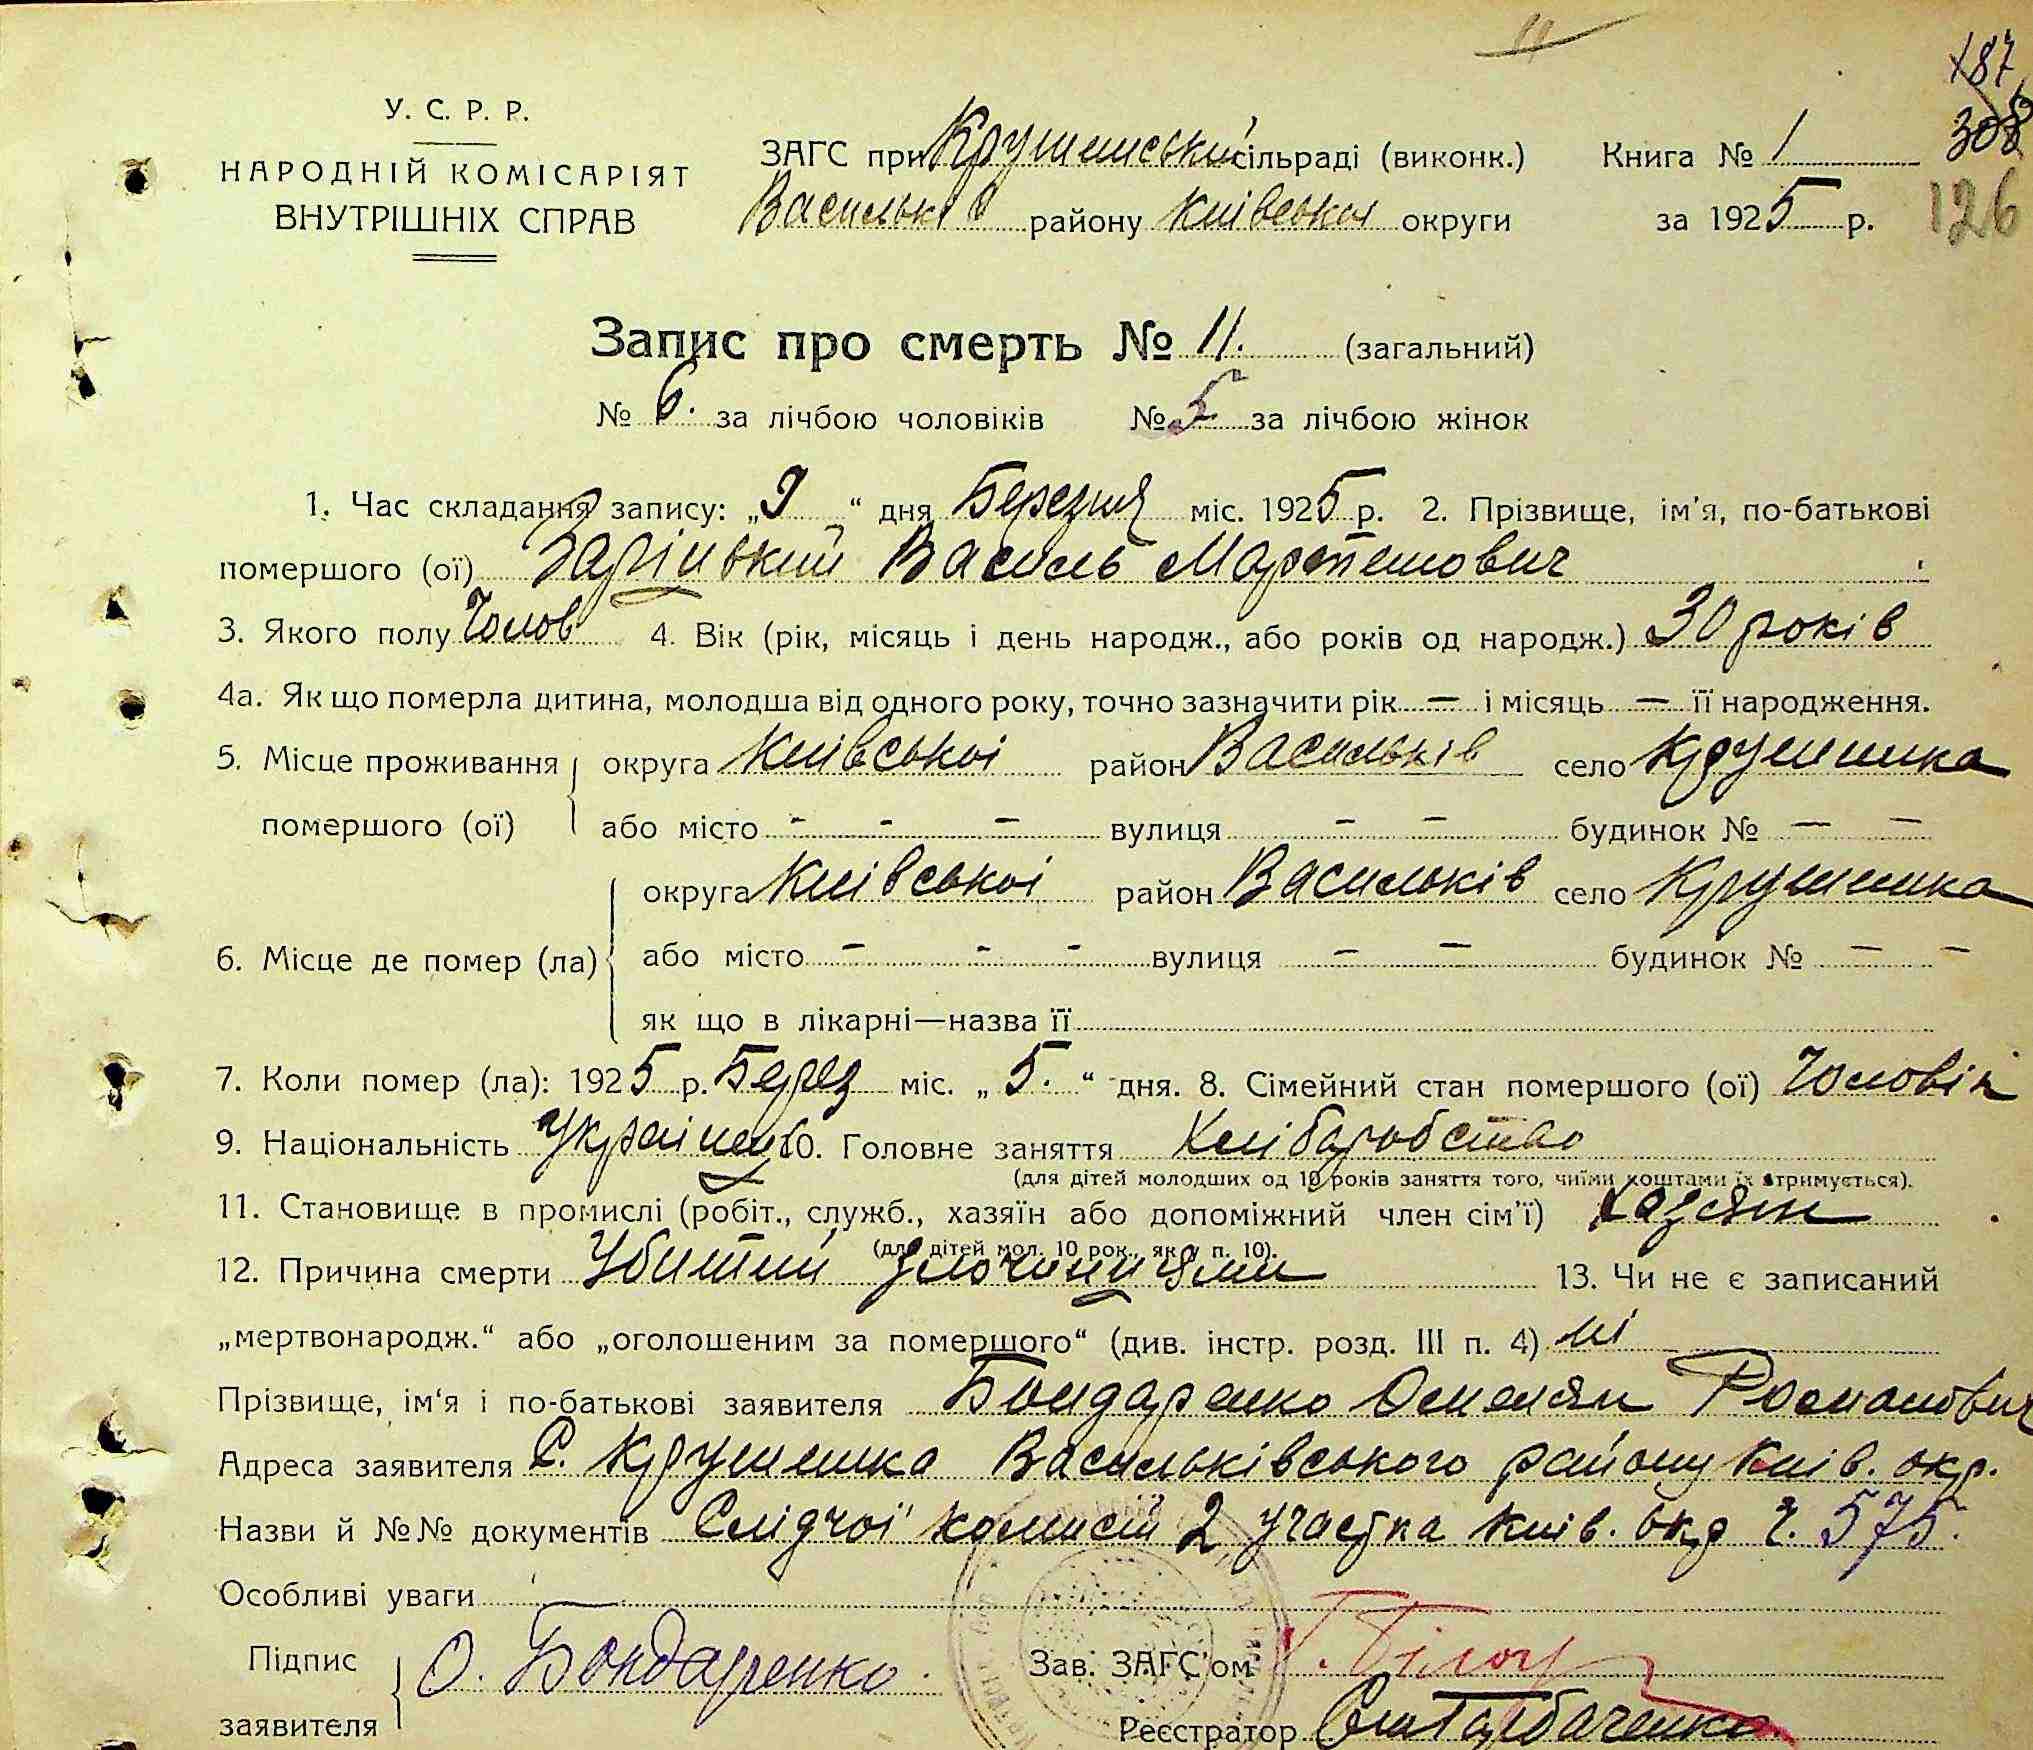 187
308
126
У. С. Р. Р.
НАРОДНІЙ КОМІСАРІЯТ
ВНУТРІШНІХ СПРАВ
ЗАГС при Крушинській сільраді (виконк.)
Васильків району Київської округи
Книга № 1
за 1925 р.
Запис про смерть № 11. (загальний)
№ 6. за лічбою чоловіків № 5 за лічбою жінок
1. Час складання запису: „9“ дня Березня міс. 1925 р. 2. Прізвище, ім'я, по-батькові
помершого (ої) Заріцький Василь Мартинович
3. Якого полу Чолов 4. Вік (рік, місяць і день народж., або років од народж.) 30 років
4а. Як що померла дитина, молодша від одного року, точно зазначити рік — і місяць — її народження.
5. Місце проживання помершого (ої) округа Київської район Васильків село Крушинка
або місто - - — вулиця — — будинок № — —
6. Місце де помер (ла) округа Київської район Васильків село Крушинка
або місто — - - вулиця — — будинок № — —
як що в лікарні—назва її
7. Коли помер (ла): 1925 р. Берез міс. „5.“ дня. 8. Сімейний стан помершого (ої) Чоловік
9. Національність Українец 10. Головне заняття Хліборобство
(для дітей молодших од 10 років заняття того, чиїми коштами їх втримується).
11. Становище в промислі (робіт., служб., хазяїн або допоміжний член сім'ї) Хазяін
(для дітей мол. 10 рок., як у п. 10).
12. Причина смерти Убитий злочинцями 13. Чи не є записаний
„мертвонародж.“ або „оголошеним за помершого“ (див. інстр. розд. III п. 4) ні
Прізвище, ім'я і по-батькові заявителя Бондаренко Омелян Романович
Адреса заявителя С. Крушинка Васильківського району Київ. окр.
Назви й №№ документів Слідчої комисії 2 участка Київ. окр ч. 575.
Особливі уваги
Підпис заявителя О. Бондаренко
Зав. ЗАГС'ом
Реєстратор